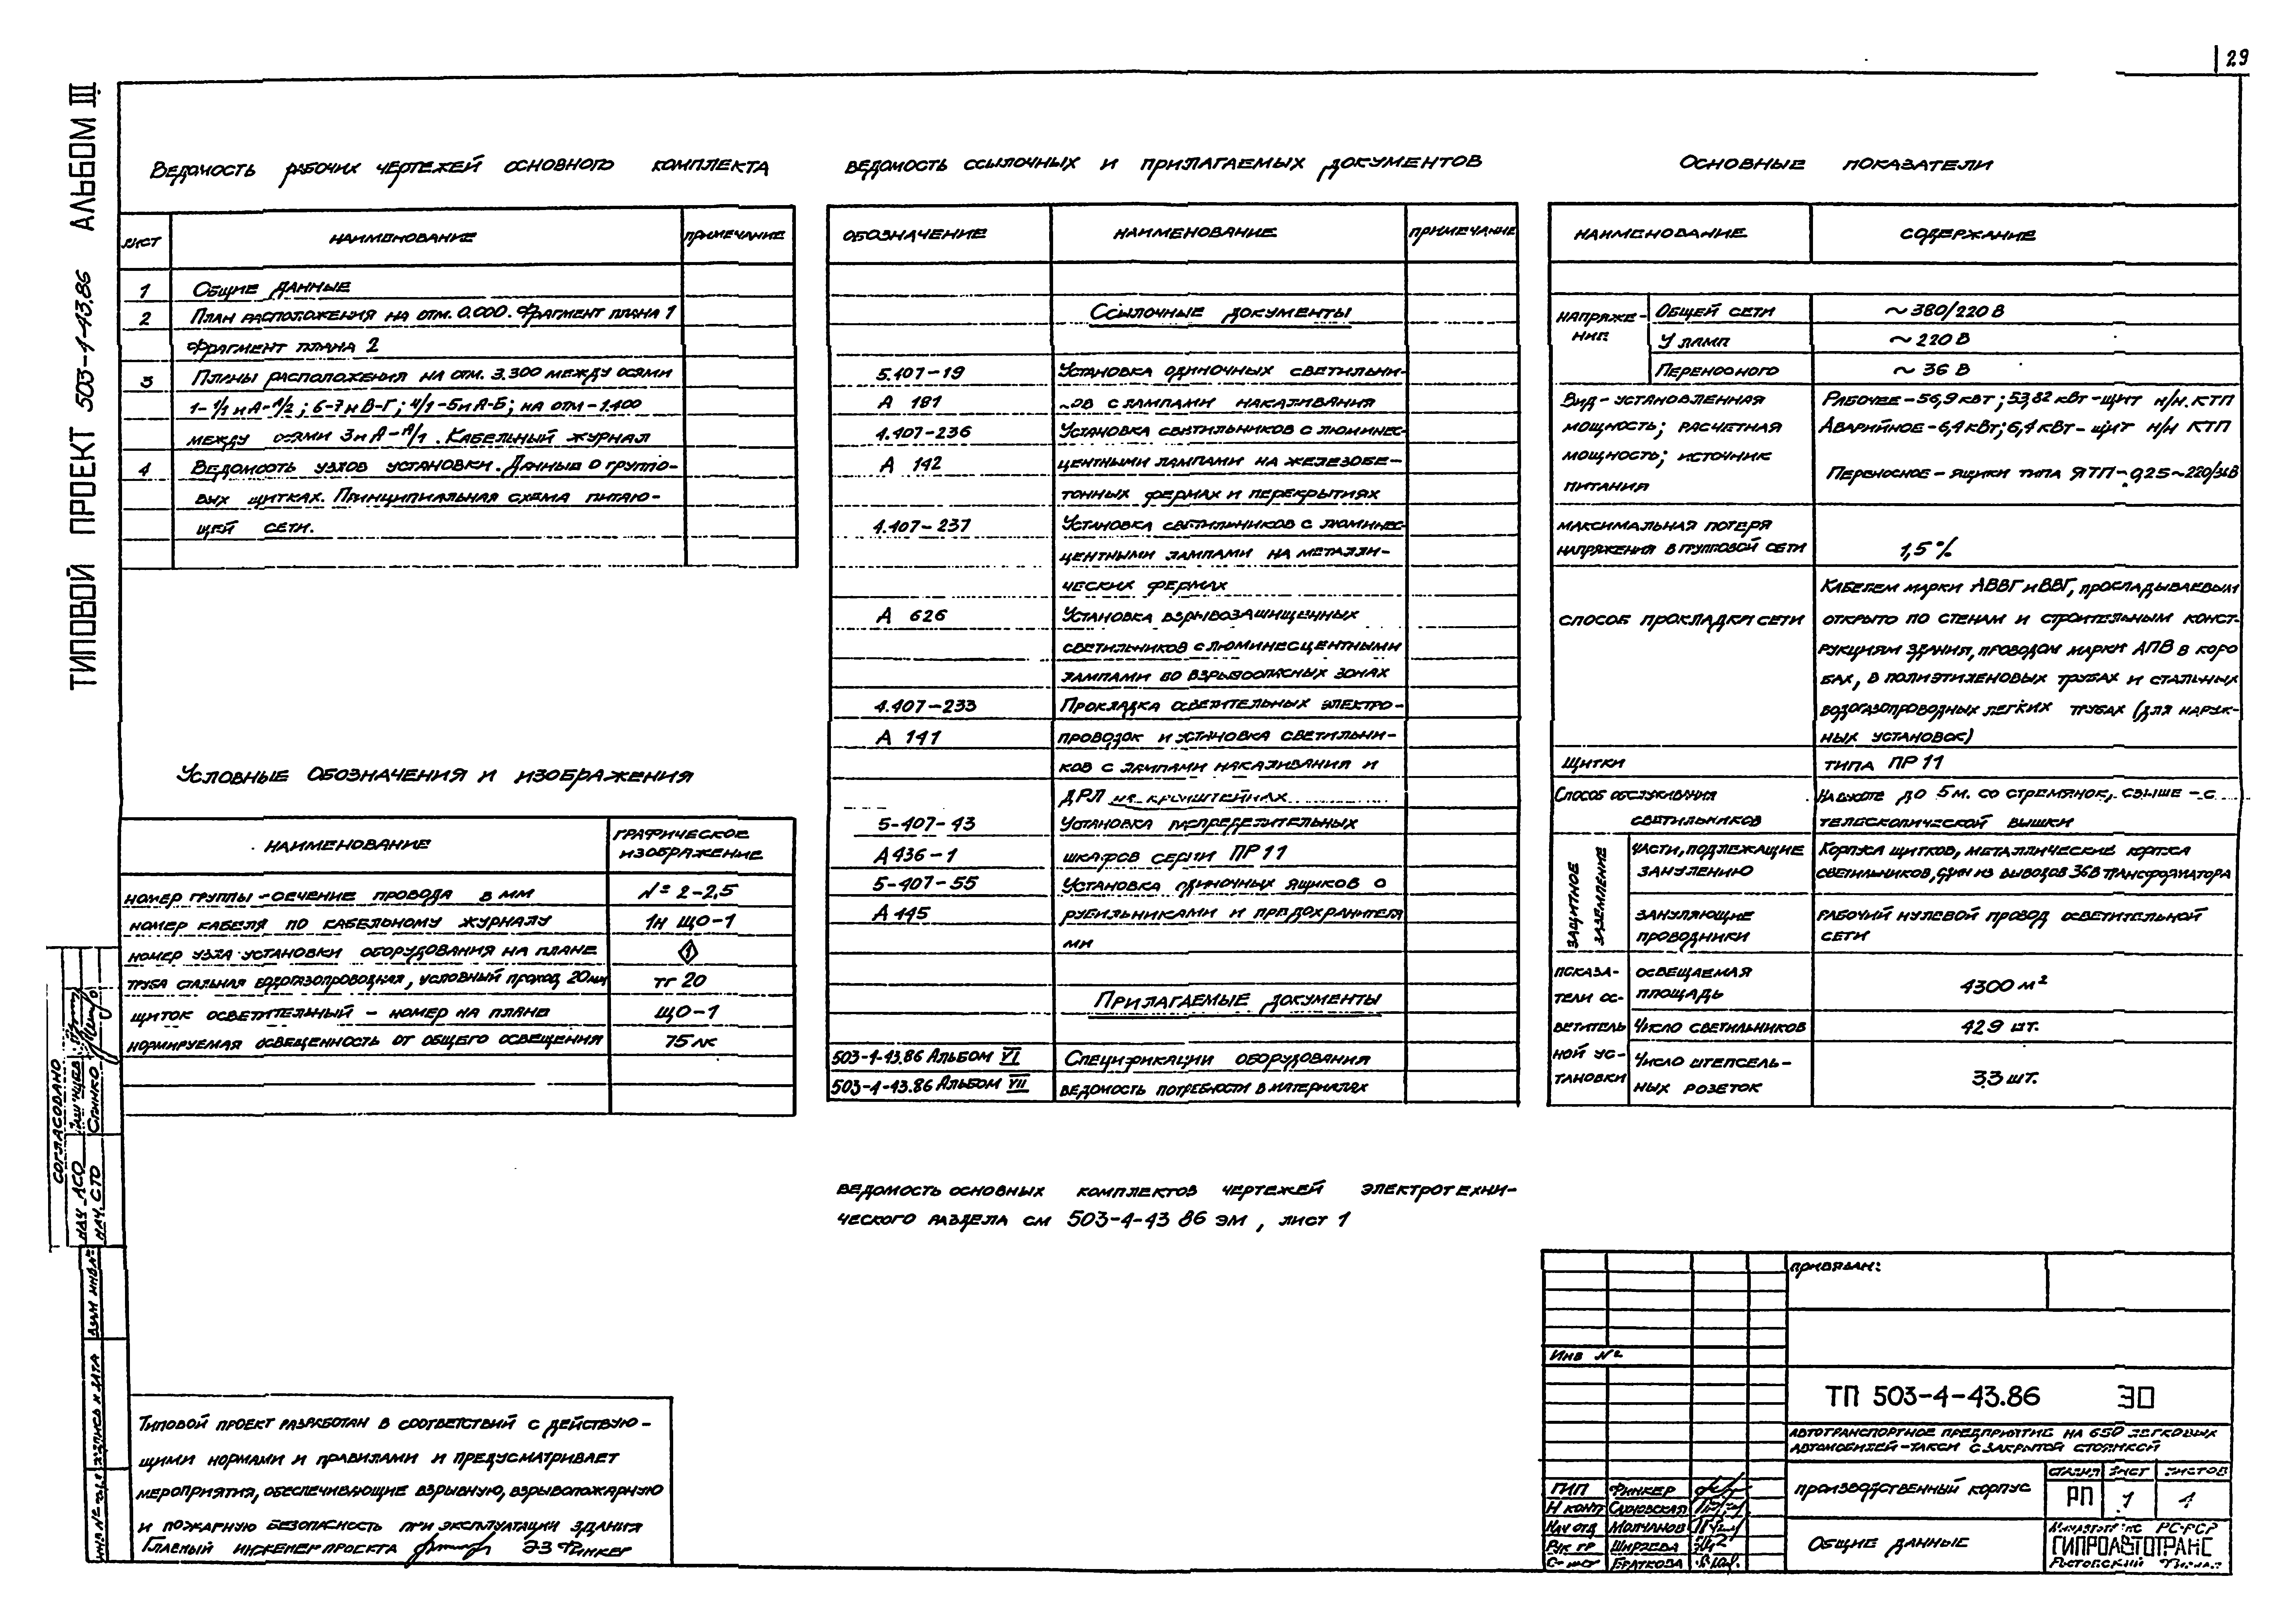 29
ТИПОВОЙ ПРОЕКТ 503-4-43.86 АЛЬБОМ III
ВЕДОМОСТЬ РАБОЧИХ ЧЕРТЕЖЕЙ ОСНОВНОГО КОМПЛЕКТА
ЛИСТ НАИМЕНОВАНИЕ ПРИМЕЧАНИЕ
1 ОБЩИЕ ДАННЫЕ
2 ПЛАН РАСПОЛОЖЕНИЯ НА ОТМ. 0.000. ФРАГМЕНТ ПЛАНА 1
ФРАГМЕНТ ПЛАНА 2
3 ПЛАНЫ РАСПОЛОЖЕНИЯ НА ОТМ. 3.300 МЕЖДУ ОСЯМИ
1-1/1 И А-А/2; 6-7 И В-Г; 4/1-5 И А-Б; НА ОТМ -1.400
МЕЖДУ ОСЯМИ 3 И А-А/1. КАБЕЛЬНЫЙ ЖУРНАЛ
4 ВЕДОМОСТЬ УЗЛОВ УСТАНОВКИ. ДАННЫЕ О ГРУППО-
ВЫХ ЩИТКАХ. ПРИНЦИПИАЛЬНАЯ СХЕМА ПИТАЮ-
ЩЕЙ СЕТИ.
УСЛОВНЫЕ ОБОЗНАЧЕНИЯ И ИЗОБРАЖЕНИЯ
НАИМЕНОВАНИЕ ГРАФИЧЕСКОЕ
ИЗОБРАЖЕНИЕ
НОМЕР ГРУППЫ - СЕЧЕНИЕ ПРОВОДА В ММ № 2-2,5
НОМЕР КАБЕЛЯ ПО КАБЕЛЬНОМУ ЖУРНАЛУ 1Н ЩО-1
НОМЕР УЗЛА УСТАНОВКИ ОБОРУДОВАНИЯ НА ПЛАНЕ 1
ТРУБА СТАЛЬНАЯ ВОДОГАЗОПРОВОДНАЯ, УСЛОВНЫЙ ПРОХОД 20ММ ТГ 20
ЩИТОК ОСВЕТИТЕЛЬНЫЙ - НОМЕР НА ПЛАНЕ ЩО-1
НОРМИРУЕМАЯ ОСВЕЩЕННОСТЬ ОТ ОБЩЕГО ОСВЕЩЕНИЯ 75 ЛК
ВЕДОМОСТЬ ССЫЛОЧНЫХ И ПРИЛАГАЕМЫХ ДОКУМЕНТОВ
ОБОЗНАЧЕНИЕ НАИМЕНОВАНИЕ ПРИМЕЧАНИЕ
ССЫЛОЧНЫЕ ДОКУМЕНТЫ
5.407-19 УСТАНОВКА ОДИНОЧНЫХ СВЕТИЛЬНИ-
А 181 КОВ С ЛАМПАМИ НАКАЛИВАНИЯ
4.407-236 УСТАНОВКА СВЕТИЛЬНИКОВ С ЛЮМИНЕС-
А 142 ЦЕНТНЫМИ ЛАМПАМИ НА ЖЕЛЕЗОБЕ-
ТОННЫХ ФЕРМАХ И ПЕРЕКРЫТИЯХ
4.407-237 УСТАНОВКА СВЕТИЛЬНИКОВ С ЛЮМИНЕС-
ЦЕНТНЫМИ ЛАМПАМИ НА МЕТАЛЛИ-
ЧЕСКИХ ФЕРМАХ
А 626 УСТАНОВКА ВЗРЫВОЗАЩИЩЕННЫХ
СВЕТИЛЬНИКОВ С ЛЮМИНЕСЦЕНТНЫМИ
ЛАМПАМИ ВО ВЗРЫВООПАСНЫХ ЗОНАХ
4.407-233 ПРОКЛАДКА ОСВЕТИТЕЛЬНЫХ ЭЛЕКТРО-
А 141 ПРОВОДОК И УСТАНОВКА СВЕТИЛЬНИ-
КОВ С ЛАМПАМИ НАКАЛИВАНИЯ И
ДРЛ НА КРОНШТЕЙНАХ
5-407-43 УСТАНОВКА РАСПРЕДЕЛИТЕЛЬНЫХ
А436-1 ШКАФОВ СЕРИИ ПР 11
5-407-55 УСТАНОВКА ОДИНОЧНЫХ ЯЩИКОВ С
А 445 РУБИЛЬНИКАМИ И ПРЕДОХРАНИТЕЛЯ
МИ
ПРИЛАГАЕМЫЕ ДОКУМЕНТЫ
503-4-43.86 АЛЬБОМ VI СПЕЦИФИКАЦИИ ОБОРУДОВАНИЯ
503-4-43.86 АЛЬБОМ VII ВЕДОМОСТЬ ПОТРЕБНОСТИ В МАТЕРИАЛАХ
ВЕДОМОСТЬ ОСНОВНЫХ КОМПЛЕКТОВ ЧЕРТЕЖЕЙ ЭЛЕКТРОТЕХНИ-
ЧЕСКОГО РАЗДЕЛА СМ 503-4-43 86 ЭМ, ЛИСТ 1
ОСНОВНЫЕ ПОКАЗАТЕЛИ
НАИМЕНОВАНИЕ СОДЕРЖАНИЕ
НАПРЯЖЕ-
НИЕ
ОБЩЕЙ СЕТИ ~ 380/220 В
У ЛАМП ~ 220 В
ПЕРЕНОСНОГО ~ 36 В
ВИД - УСТАНОВЛЕННАЯ РАБОЧЕЕ - 56,9 КВТ; 53,82 КВТ - ЩИТ Н/Н. КТП
МОЩНОСТЬ; РАСЧЕТНАЯ АВАРИЙНОЕ - 6,4 КВТ; 6,4 КВТ - ЩИТ Н/Н КТП
МОЩНОСТЬ; ИСТОЧНИК ПЕРЕНОСНОЕ - ЯЩИКИ ТИПА ЯТП-0,25~220/36В
ПИТАНИЯ
МАКСИМАЛЬНАЯ ПОТЕРЯ
НАПРЯЖЕНИЯ В ГРУППОВОЙ СЕТИ 1,5%
СПОСОБ ПРОКЛАДКИ СЕТИ
КАБЕЛЕМ МАРКИ АВВГ И ВВГ, ПРОКЛАДЫВАЕМЫМ
ОТКРЫТО ПО СТЕНАМ И СТРОИТЕЛЬНЫМ КОНСТ-
РУКЦИЯМ ЗДАНИЯ, ПРОВОДОМ МАРКИ АПВ В КОРО
БАХ, В ПОЛИЭТИЛЕНОВЫХ ТРУБАХ И СТАЛЬНЫХ
ВОДОГАЗОПРОВОДНЫХ ЛЕГКИХ ТРУБАХ (ДЛЯ НАРУЖ-
НЫХ УСТАНОВОК)
ЩИТКИ ТИПА ПР 11
СПОСОБ ОБСЛУЖИВАНИЯ НА ВЫСОТЕ ДО 5М. СО СТРЕМЯНОК, СВЫШЕ - С
СВЕТИЛЬНИКОВ ТЕЛЕСКОПИЧЕСКОЙ ВЫШКИ
ЗАЩИТНОЕ ЗАЗЕМЛЕНИЕ
ЧАСТИ, ПОДЛЕЖАЩИЕ КОРПУСА ЩИТКОВ, МЕТАЛЛИЧЕСКИЕ КОРПУСА
ЗАНУЛЕНИЮ СВЕТИЛЬНИКОВ, ОДИН ИЗ ВЫВОДОВ 36В ТРАНСФОРМАТОРА
ЗАНУЛЯЮЩИЕ РАБОЧИЙ НУЛЕВОЙ ПРОВОД ОСВЕТИТЕЛЬНОЙ
ПРОВОДНИКИ СЕТИ
ПОКАЗА-
ТЕЛИ ОС-
ВЕТИТЕЛЬ
НОЙ УС-
ТАНОВКИ
ОСВЕЩАЕМАЯ
ПЛОЩАДЬ 4300 М²
ЧИСЛО СВЕТИЛЬНИКОВ 429 ШТ.
ЧИСЛО ШТЕПСЕЛЬ-
НЫХ РОЗЕТОК 33 ШТ.
СОГЛАСОВАНО
НАЧ АСО
НАЧ. СТО
ВЗАМ ИНВ №
ТИПОВОЙ ПРОЕКТ РАЗРАБОТАН В СООТВЕТСТВИЙ С ДЕЙСТВУЮ-
ЩИМИ НОРМАМИ И ПРАВИЛАМИ И ПРЕДУСМАТРИВАЕТ
МЕРОПРИЯТИЯ, ОБЕСПЕЧИВАЮЩИЕ ВЗРЫВНУЮ, ВЗРЫВОПОЖАРНУЮ
И ПОЖАРНУЮ БЕЗОПАСНОСТЬ ПРИ ЭКСПЛУАТАЦИИ ЗДАНИЯ
ГЛАВНЫЙ ИНЖЕНЕР ПРОЕКТА ЭЗ ФИНКЕР
ПРИВЯЗАН:
ИНВ №
ТП 503-4-43.86 ЭО
АВТОТРАНСПОРТНОЕ ПРЕДПРИЯТИЕ НА 650 ЛЕГКОВЫХ
АВТОМОБИЛЕЙ-ТАКСИ С ЗАКРЫТОЙ СТОЯНКОЙ
ПРОИЗВОДСТВЕННЫЙ КОРПУС
СТАДИЯ ЛИСТ ЛИСТОВ
РП 1 4
ГИП ФИНКЕР
Н КОНТ САХНОВСКАЯ
НАЧ ОТД МОЛЧАНОВ
РУК ГР ШИРЯЕВА
БРАТКОВА
ОБЩИЕ ДАННЫЕ
РСФСР
ГИПРОАВТОТРАНС
РОСТОВСКИЙ ФИЛИАЛ